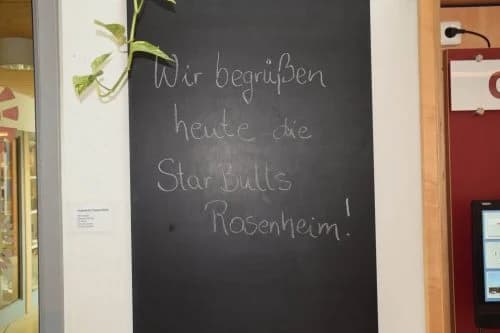 Wir begrüßen
heute die
Star Bulls
Rosenheim!